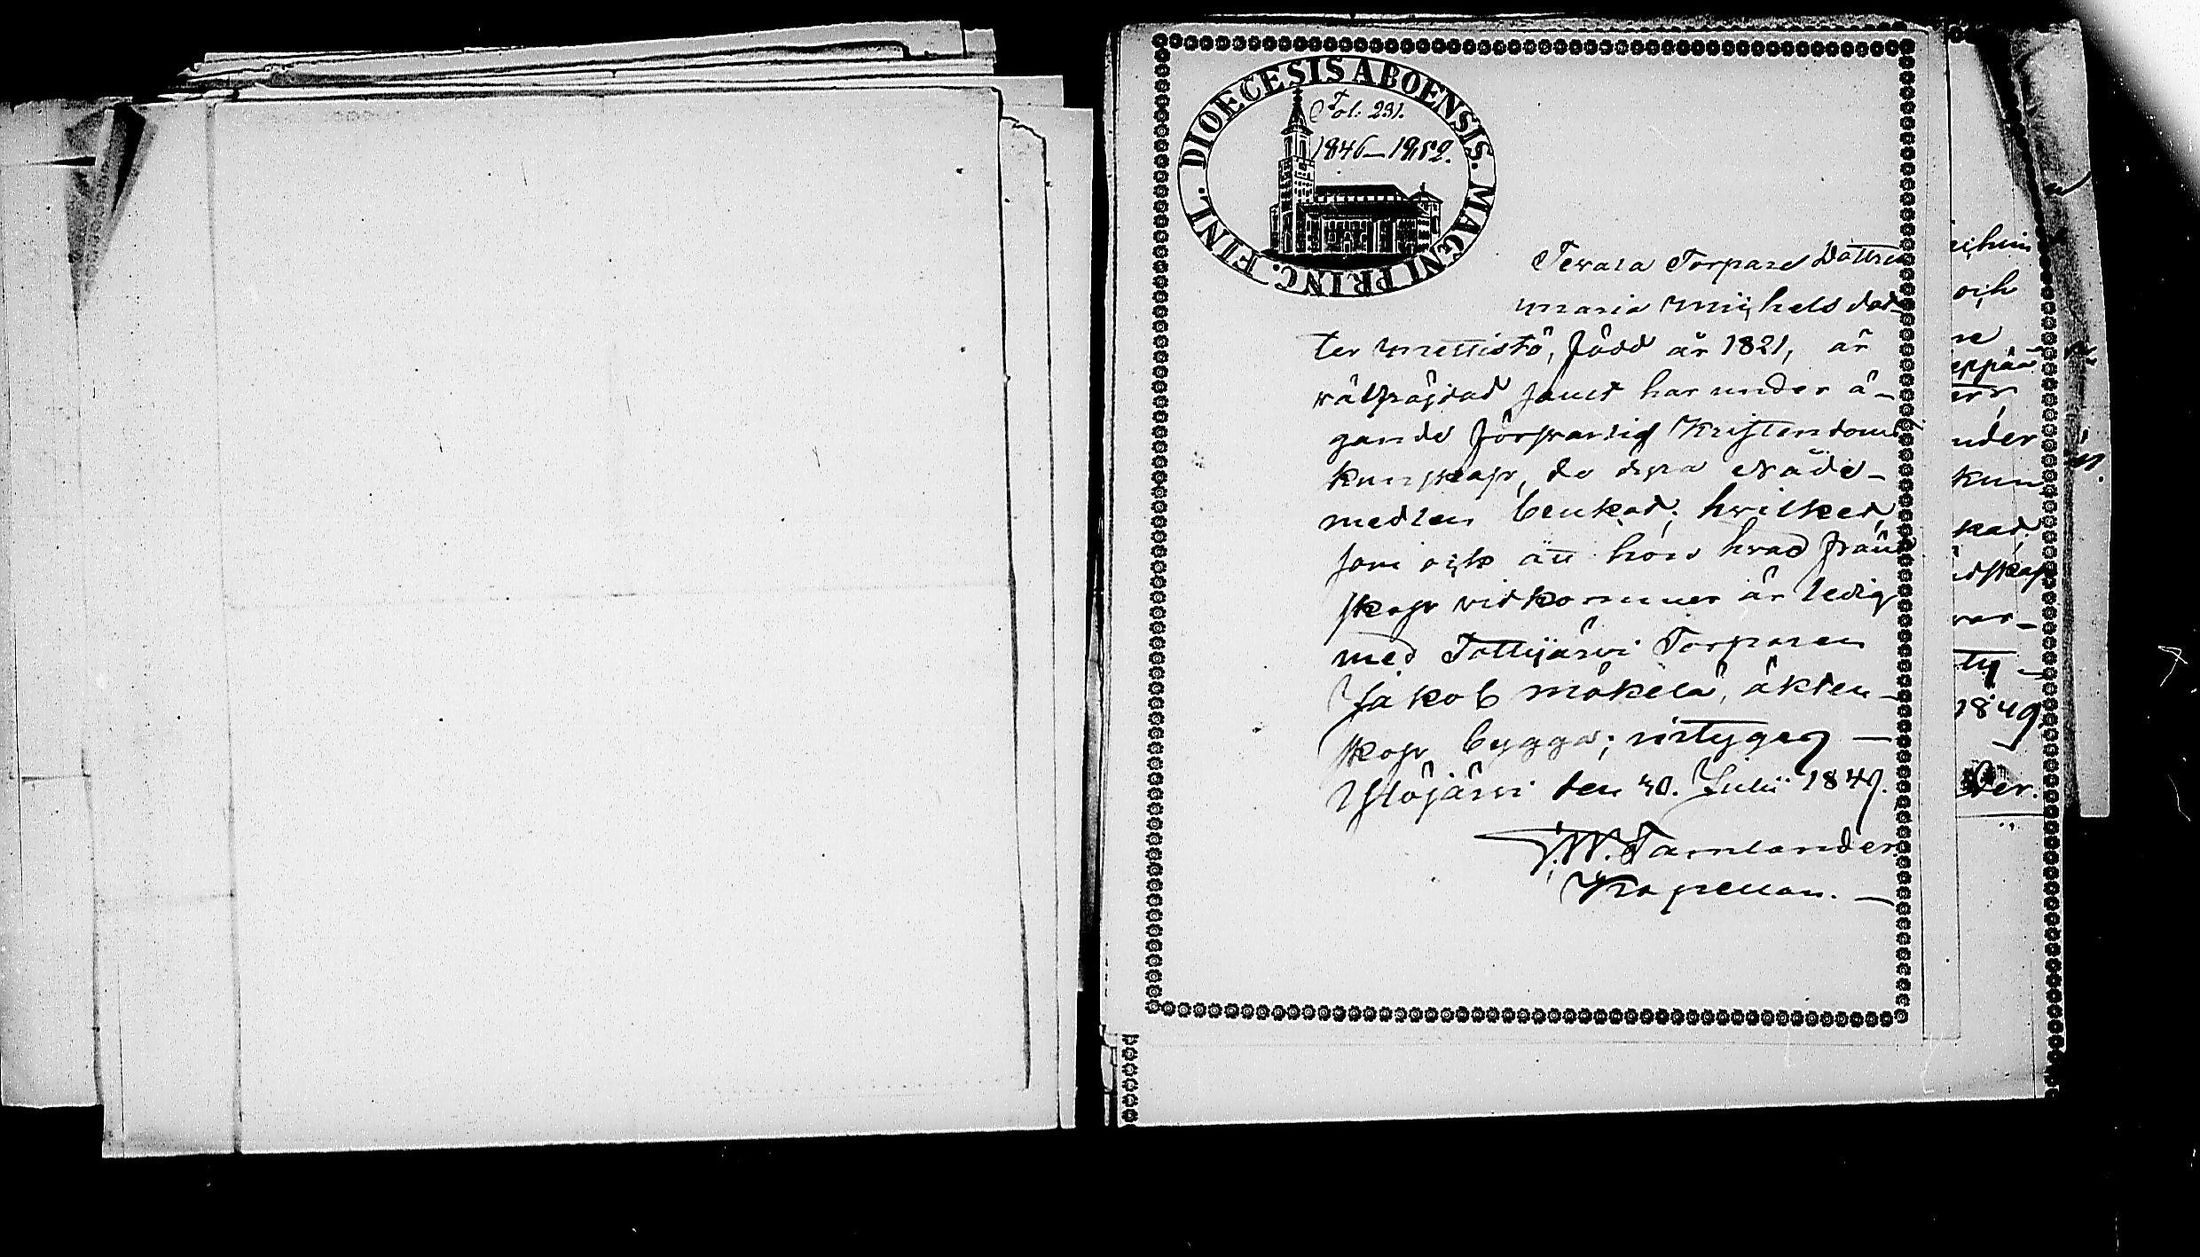 DIOECESIS ABOENSIS. MAGNI PRINC. FINL.
Fol: 231.
1846–1852.
Torpare Dottren
Maria Michels dot-
ter Mettistö, född år 1821, är
wälfräjdad samt har under å-
gande försvarlig Kristendoms
kunskap, de dyra Nåde-
medlen brukat; hvilket,
som ock att hon hvad fränd
skap vidkommer är ledig
med Tottijärvi Torparen
Jakob Mäkelä, äkten-
skap bygga; intygas —
Ylöjärvi den 30. Julii 1849.
Tamlander
Kapellan. —
och
under
kun
kad.
dskap
var-
1849